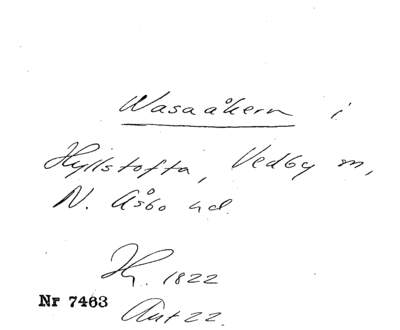 Wasaåkern i
Hyllstofta, Vedby sn,
N. Åsbo hd.
Hy. 1822
Nr 7463
Ant 22.